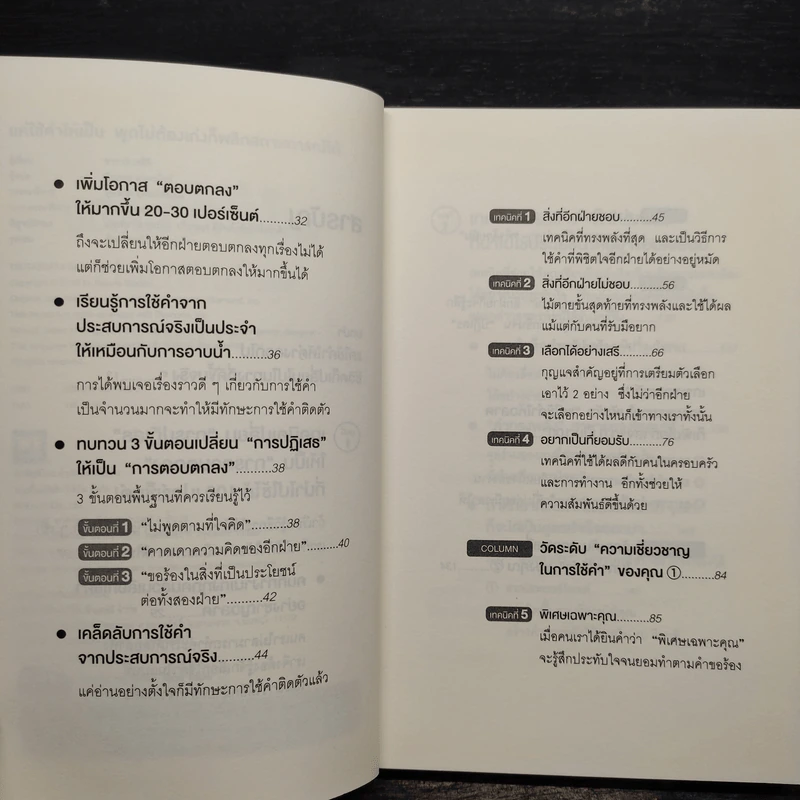 ● เพิ่มโอกาส “ตอบตกลง”
ให้มากขึ้น 20-30 เปอร์เซ็นต์..........32
ถึงจะเปลี่ยนให้อีกฝ่ายตอบตกลงทุกเรื่องไม่ได้
แต่ก็ช่วยเพิ่มโอกาสตอบตกลงให้มากขึ้นได้
● เรียนรู้การใช้คำจาก
ประสบการณ์จริงเป็นประจำ
ให้เหมือนกับการอาบน้ำ..........36
การได้พบเจอเรื่องราวดี ๆ เกี่ยวกับการใช้คำ
เป็นจำนวนมากจะทำให้มีทักษะการใช้คำติดตัว
● ทบทวน 3 ขั้นตอนเปลี่ยน “การปฏิเสธ”
ให้เป็น “การตอบตกลง”..........38
3 ขั้นตอนพื้นฐานที่ควรเรียนรู้ไว้
ขั้นตอนที่ 1 “ไม่พูดตามที่ใจคิด”..........38
ขั้นตอนที่ 2 “คาดเดาความคิดของอีกฝ่าย”..........40
ขั้นตอนที่ 3 “ขอร้องในสิ่งที่เป็นประโยชน์
ต่อทั้งสองฝ่าย”..........42
● เคล็ดลับการใช้คำ
จากประสบการณ์จริง..........44
แค่อ่านอย่างตั้งใจก็มีทักษะการใช้คำติดตัวแล้ว
เทคนิคที่ 1 สิ่งที่อีกฝ่ายชอบ..........45
เทคนิคที่ทรงพลังที่สุด และเป็นวิธีการ
ใช้คำที่พิชิตใจอีกฝ่ายได้อย่างอยู่หมัด
เทคนิคที่ 2 สิ่งที่อีกฝ่ายไม่ชอบ..........56
ไม้ตายขั้นสุดท้ายที่ทรงพลังและใช้ได้ผล
แม้แต่กับคนที่รับมือยาก
เทคนิคที่ 3 เลือกได้อย่างเสรี..........66
กุญแจสำคัญอยู่ที่การเตรียมตัวเลือก
เอาไว้ 2 อย่าง ซึ่งไม่ว่าอีกฝ่าย
จะเลือกอย่างไหนก็เข้าทางเราทั้งนั้น
เทคนิคที่ 4 อยากเป็นที่ยอมรับ..........76
เทคนิคที่ใช้ได้ผลดีกับคนในครอบครัว
และการทำงาน อีกทั้งช่วยให้
ความสัมพันธ์ดีขึ้นด้วย
COLUMN วัดระดับ “ความเชี่ยวชาญ
ในการใช้คำ” ของคุณ ①..........84
เทคนิคที่ 5 พิเศษเฉพาะคุณ..........85
เมื่อคนเราได้ยินคำว่า “พิเศษเฉพาะคุณ”
จะรู้สึกประทับใจจนยอมทำตามคำขอร้อง